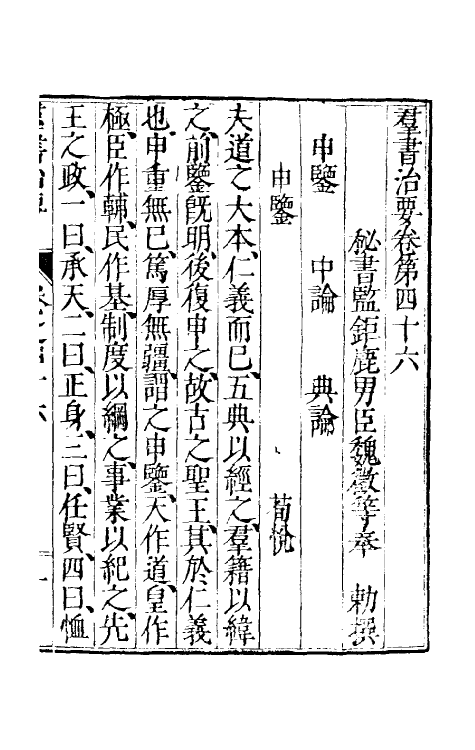 羣書治要卷第四十六
秘書監鉅鹿男臣魏徵等奉　勅撰
申鑒　中論　典論
申鑒　荀悅
夫道之大本、仁義而已、五典以經之、羣籍以緯
之、前鑒旣明、後復申之、故古之聖王、其於仁義
也、申重無已、篤厚無疆、謂之申鑒、天作道、皇作
極、臣作輔、民作基、制度以綱之、事業以紀之、先
王之政、一曰、承天、二曰、正身、三曰、任賢、四曰、恤